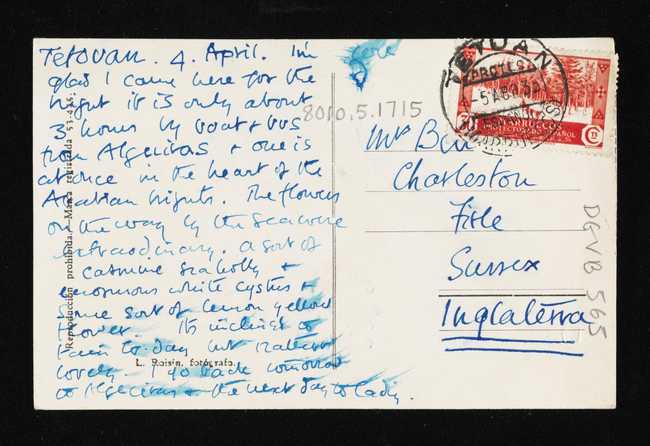 Tetouan. 4. April. I'm
glad I came here for the
night it is only about
3 hours by boat + bus
from Algeciras + one is
at once in the heart of the
Arabian Nights. The flowers
on the way by the sea were
extraordinary. A sort of
sea holly +
enormous white cystus +
some sort of lemon yellow
flower. Its inclined to
rain to day but rather
lovely. I go back tomorrow
to Algeciras + the next day to Cadiz.
love
8010.5.1715
Mrs Bell
Charleston
Firle
Sussex
Inglaterra
DGVB 565
TETUAN
MARRUECOS
PROTECTORADO ESPAÑOL
Reproducción prohibida
L. Roisin, fotógrafo.